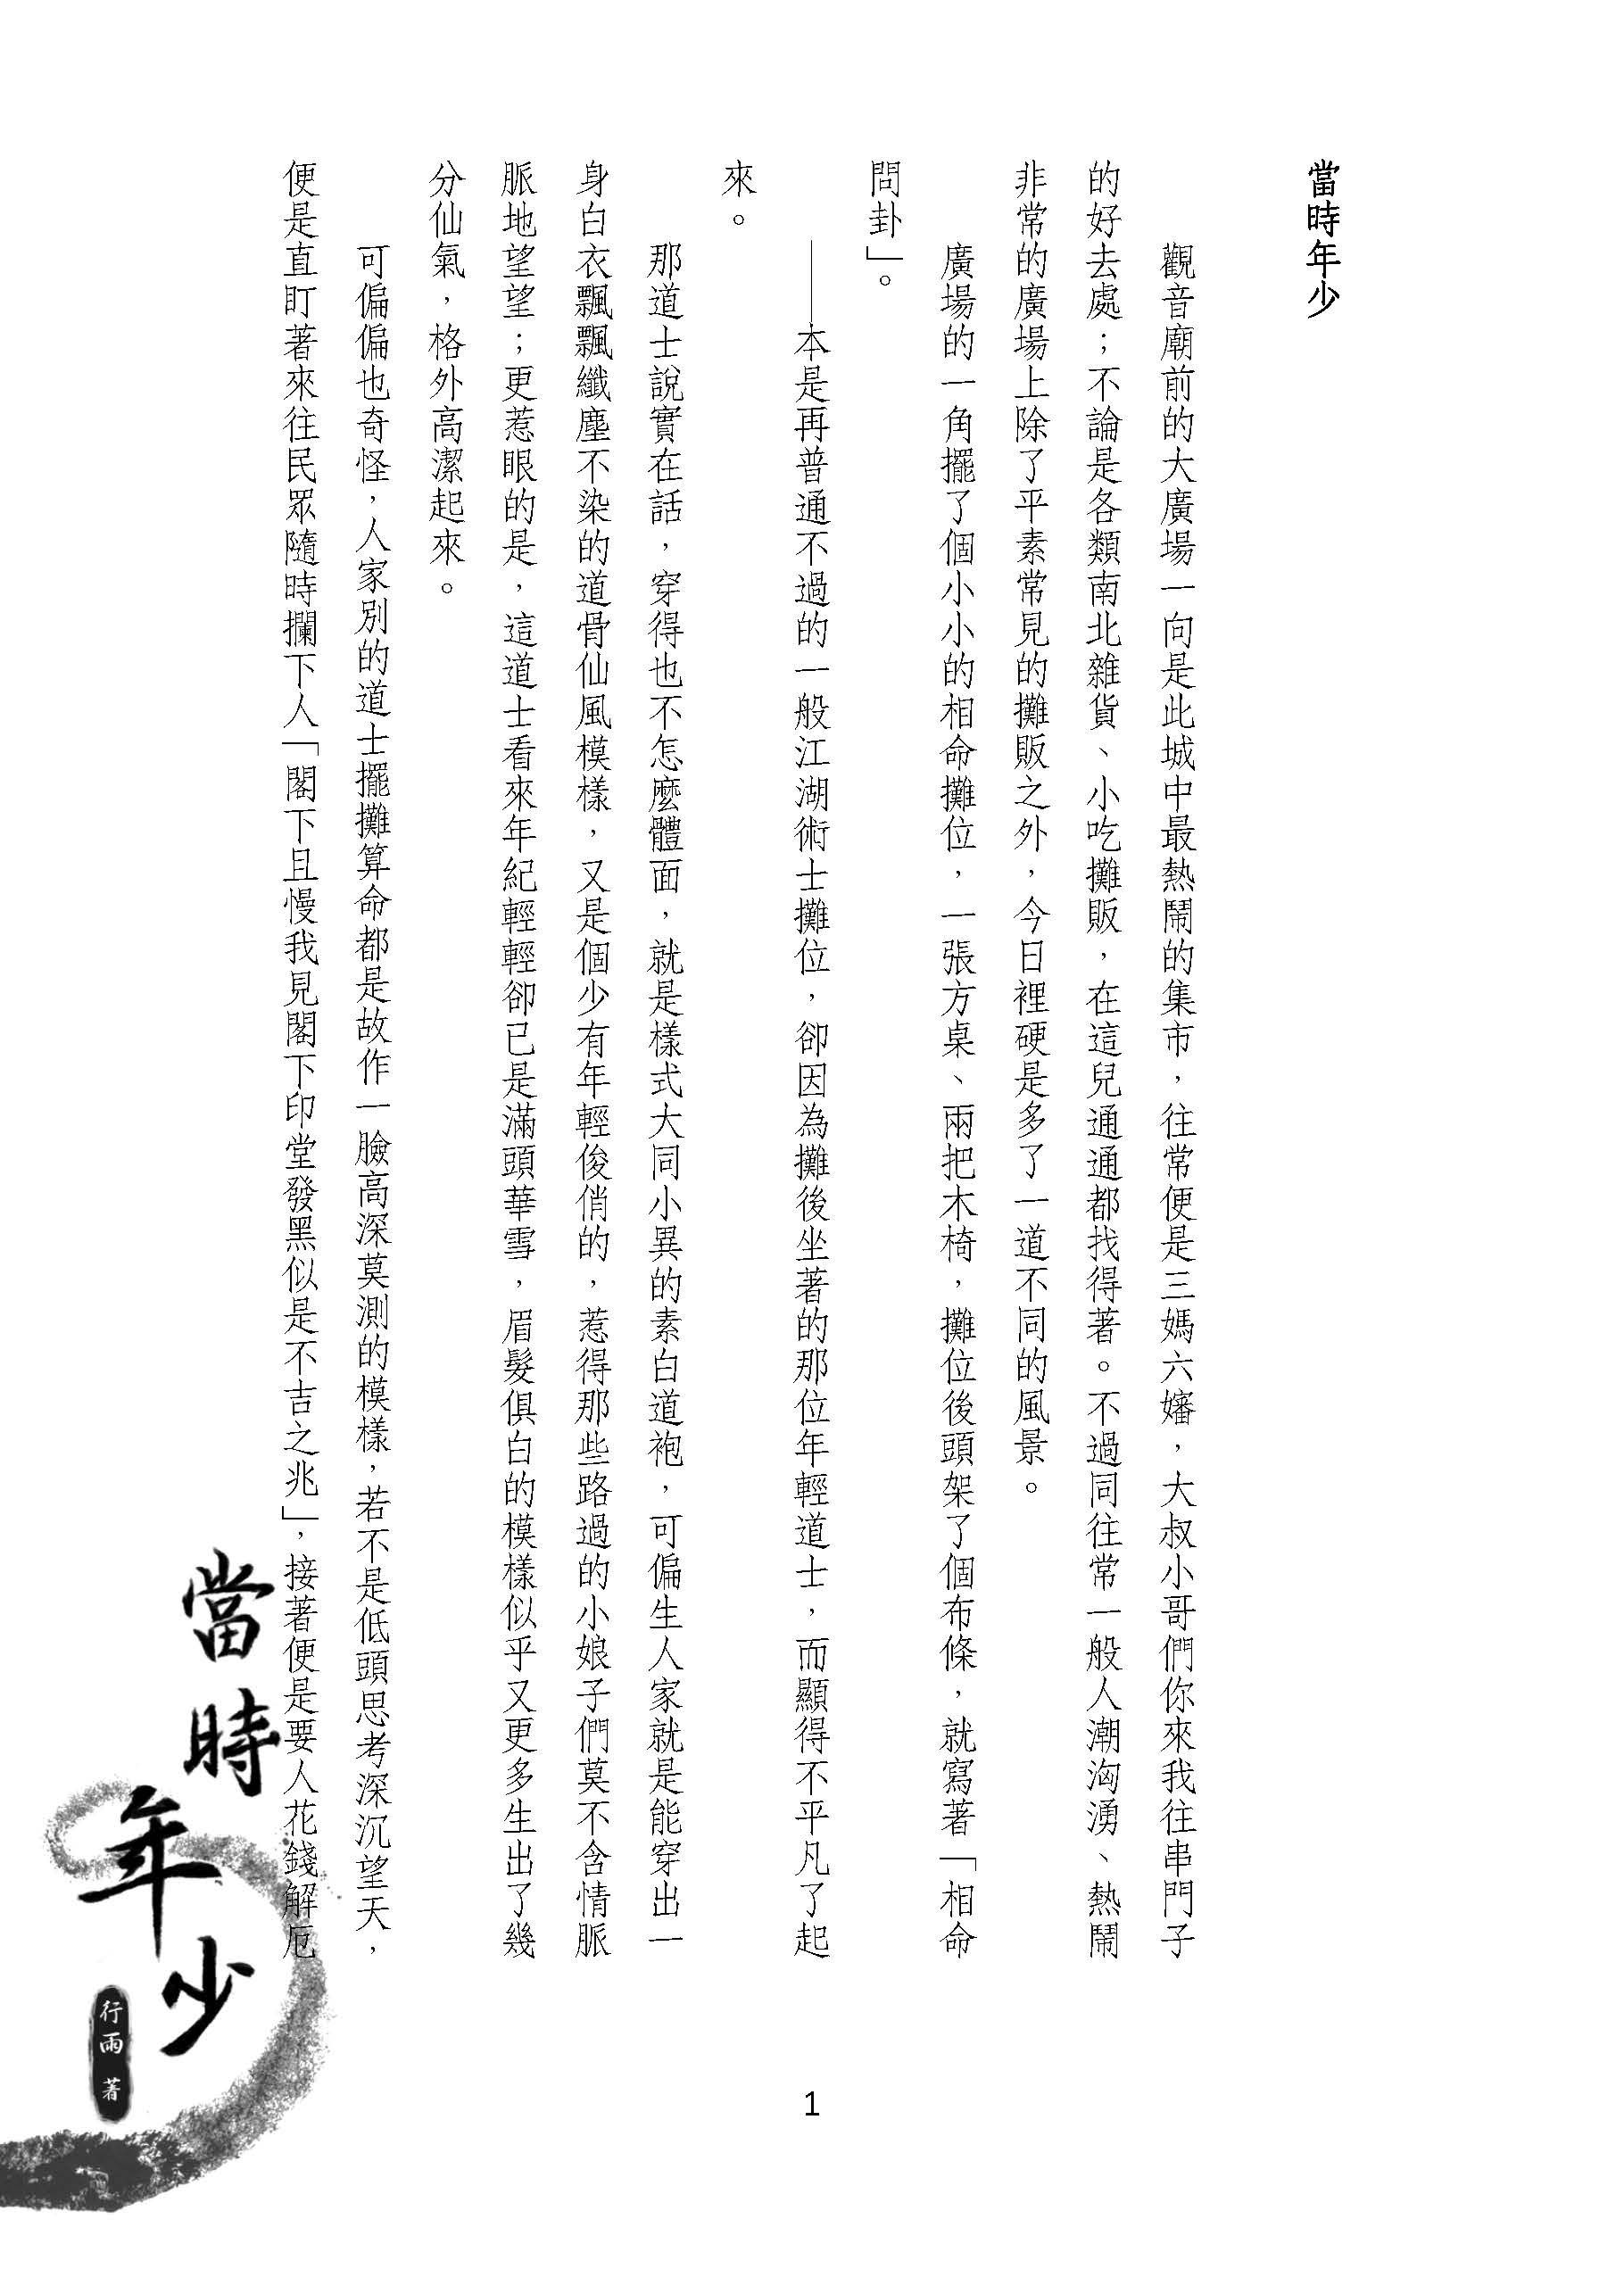 當時年少
觀音廟前的大廣場一向是此城中最熱鬧的集市，往常便是三媽六嬸，大叔小哥們你來我往串門子
的好去處；不論是各類南北雜貨、小吃攤販，在這兒通通都找得著。不過同往常一般人潮洶湧、熱鬧
非常的廣場上除了平素常見的攤販之外，今日裡硬是多了一道不同的風景。
廣場的一角擺了個小小的相命攤位，一張方桌、兩把木椅，攤位後頭架了個布條，就寫著「相命
問卦」。
——本是再普通不過的一般江湖術士攤位，卻因為攤後坐著的那位年輕道士，而顯得不平凡了起
來。
那道士說實在話，穿得也不怎麼體面，就是樣式大同小異的素白道袍，可偏生人家就是能穿出一
身白衣飄飄纖塵不染的道骨仙風模樣，又是個少有年輕俊俏的，惹得那些路過的小娘子們莫不含情脈
脈地望望；更惹眼的是，這道士看來年紀輕輕卻已是滿頭華雪，眉髮俱白的模樣似乎又更多生出了幾
分仙氣，格外高潔起來。
可偏偏也奇怪，人家別的道士擺攤算命都是故作一臉高深莫測的模樣，若不是低頭思考深沉望天，
便是直盯著來往民眾隨時攔下人「閣下且慢我見閣下印堂發黑似是不吉之兆」，接著便是要人花錢解厄
當時年少
行雨 著
1